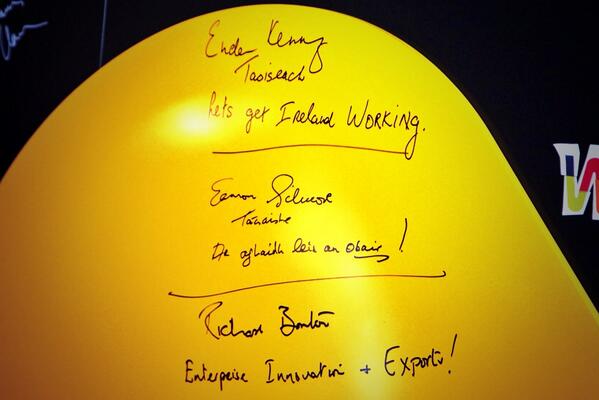 Enda Kenny
Taoiseach
Lets get Ireland WORKING.
Eamon Gilmore
Tánaiste
Ar aghaidh leis an obair!
Richard Bruton
Enterprise Innovation + Exports!
W